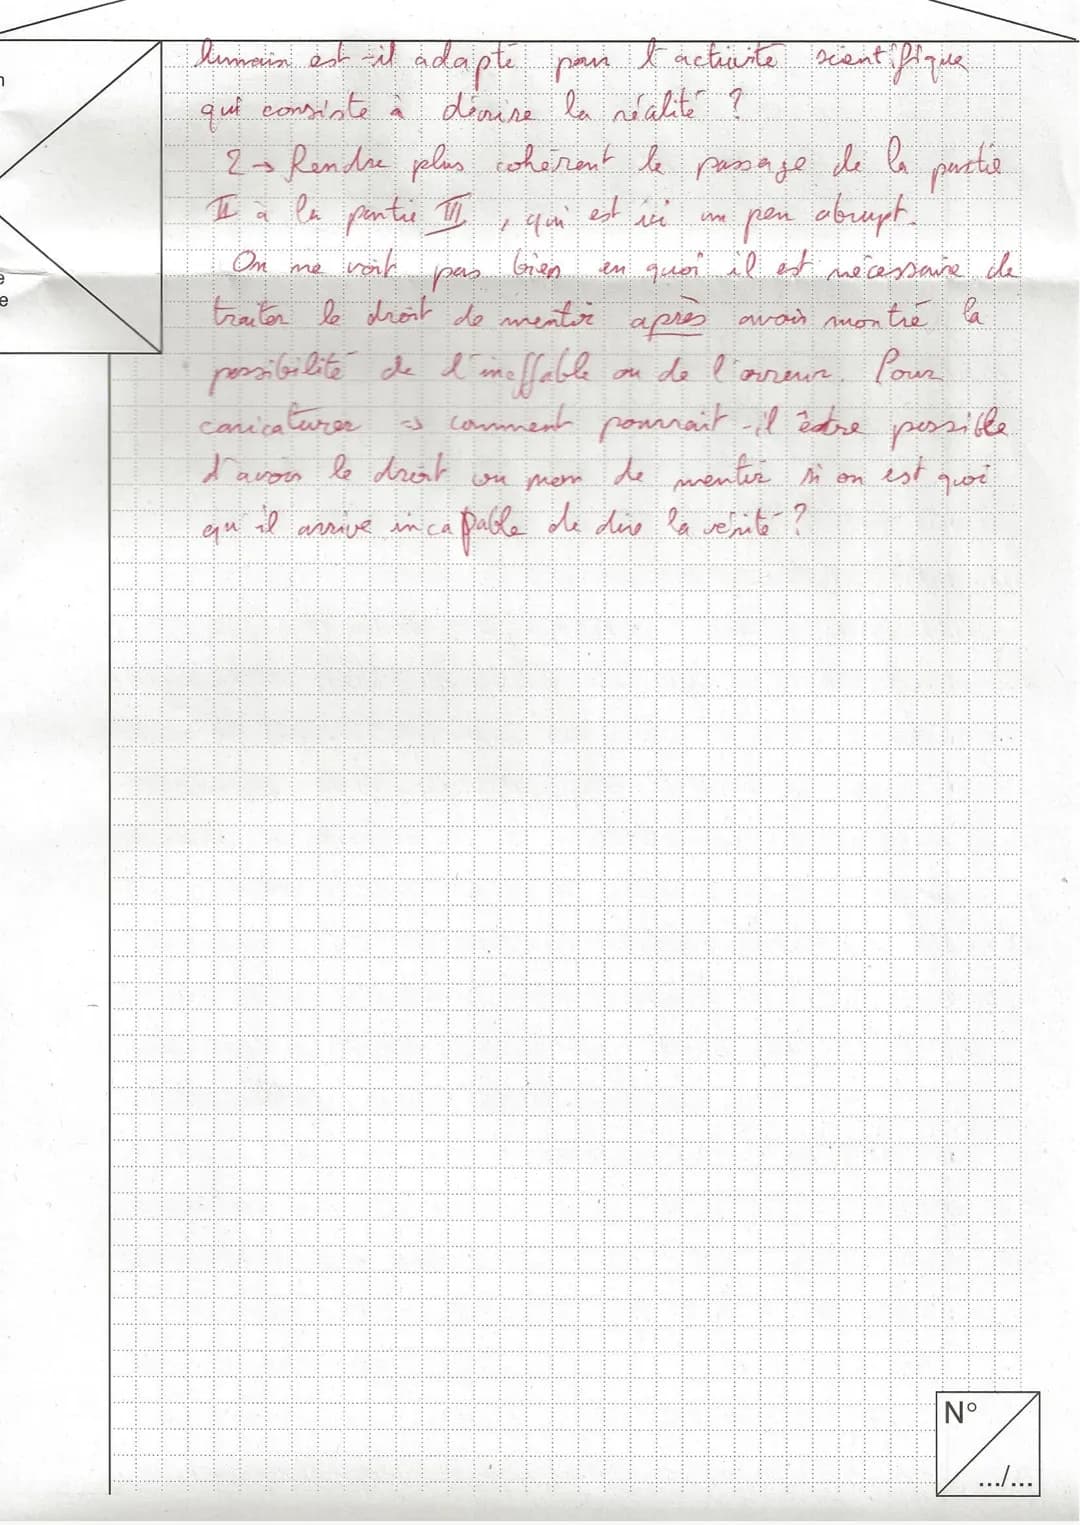 humain est-il adapté pour l'activité scientifique
qui consiste à décrire la réalité ?
2 → Rendre plus cohérent le passage de la partie
II à la partie III, qui est ici un peu abrupt.
On ne voit pas bien en quoi il est nécessaire de
traiter le droit de mentir après avoir montré la
possibilité de l'ineffable ou de l'erreur. Pour
caricaturer => comment pourrait-il être possible
d'avoir le droit ou non de mentir si on est quoi
qu'il arrive incapable de dire la vérité ?
e
e
N°
.../...